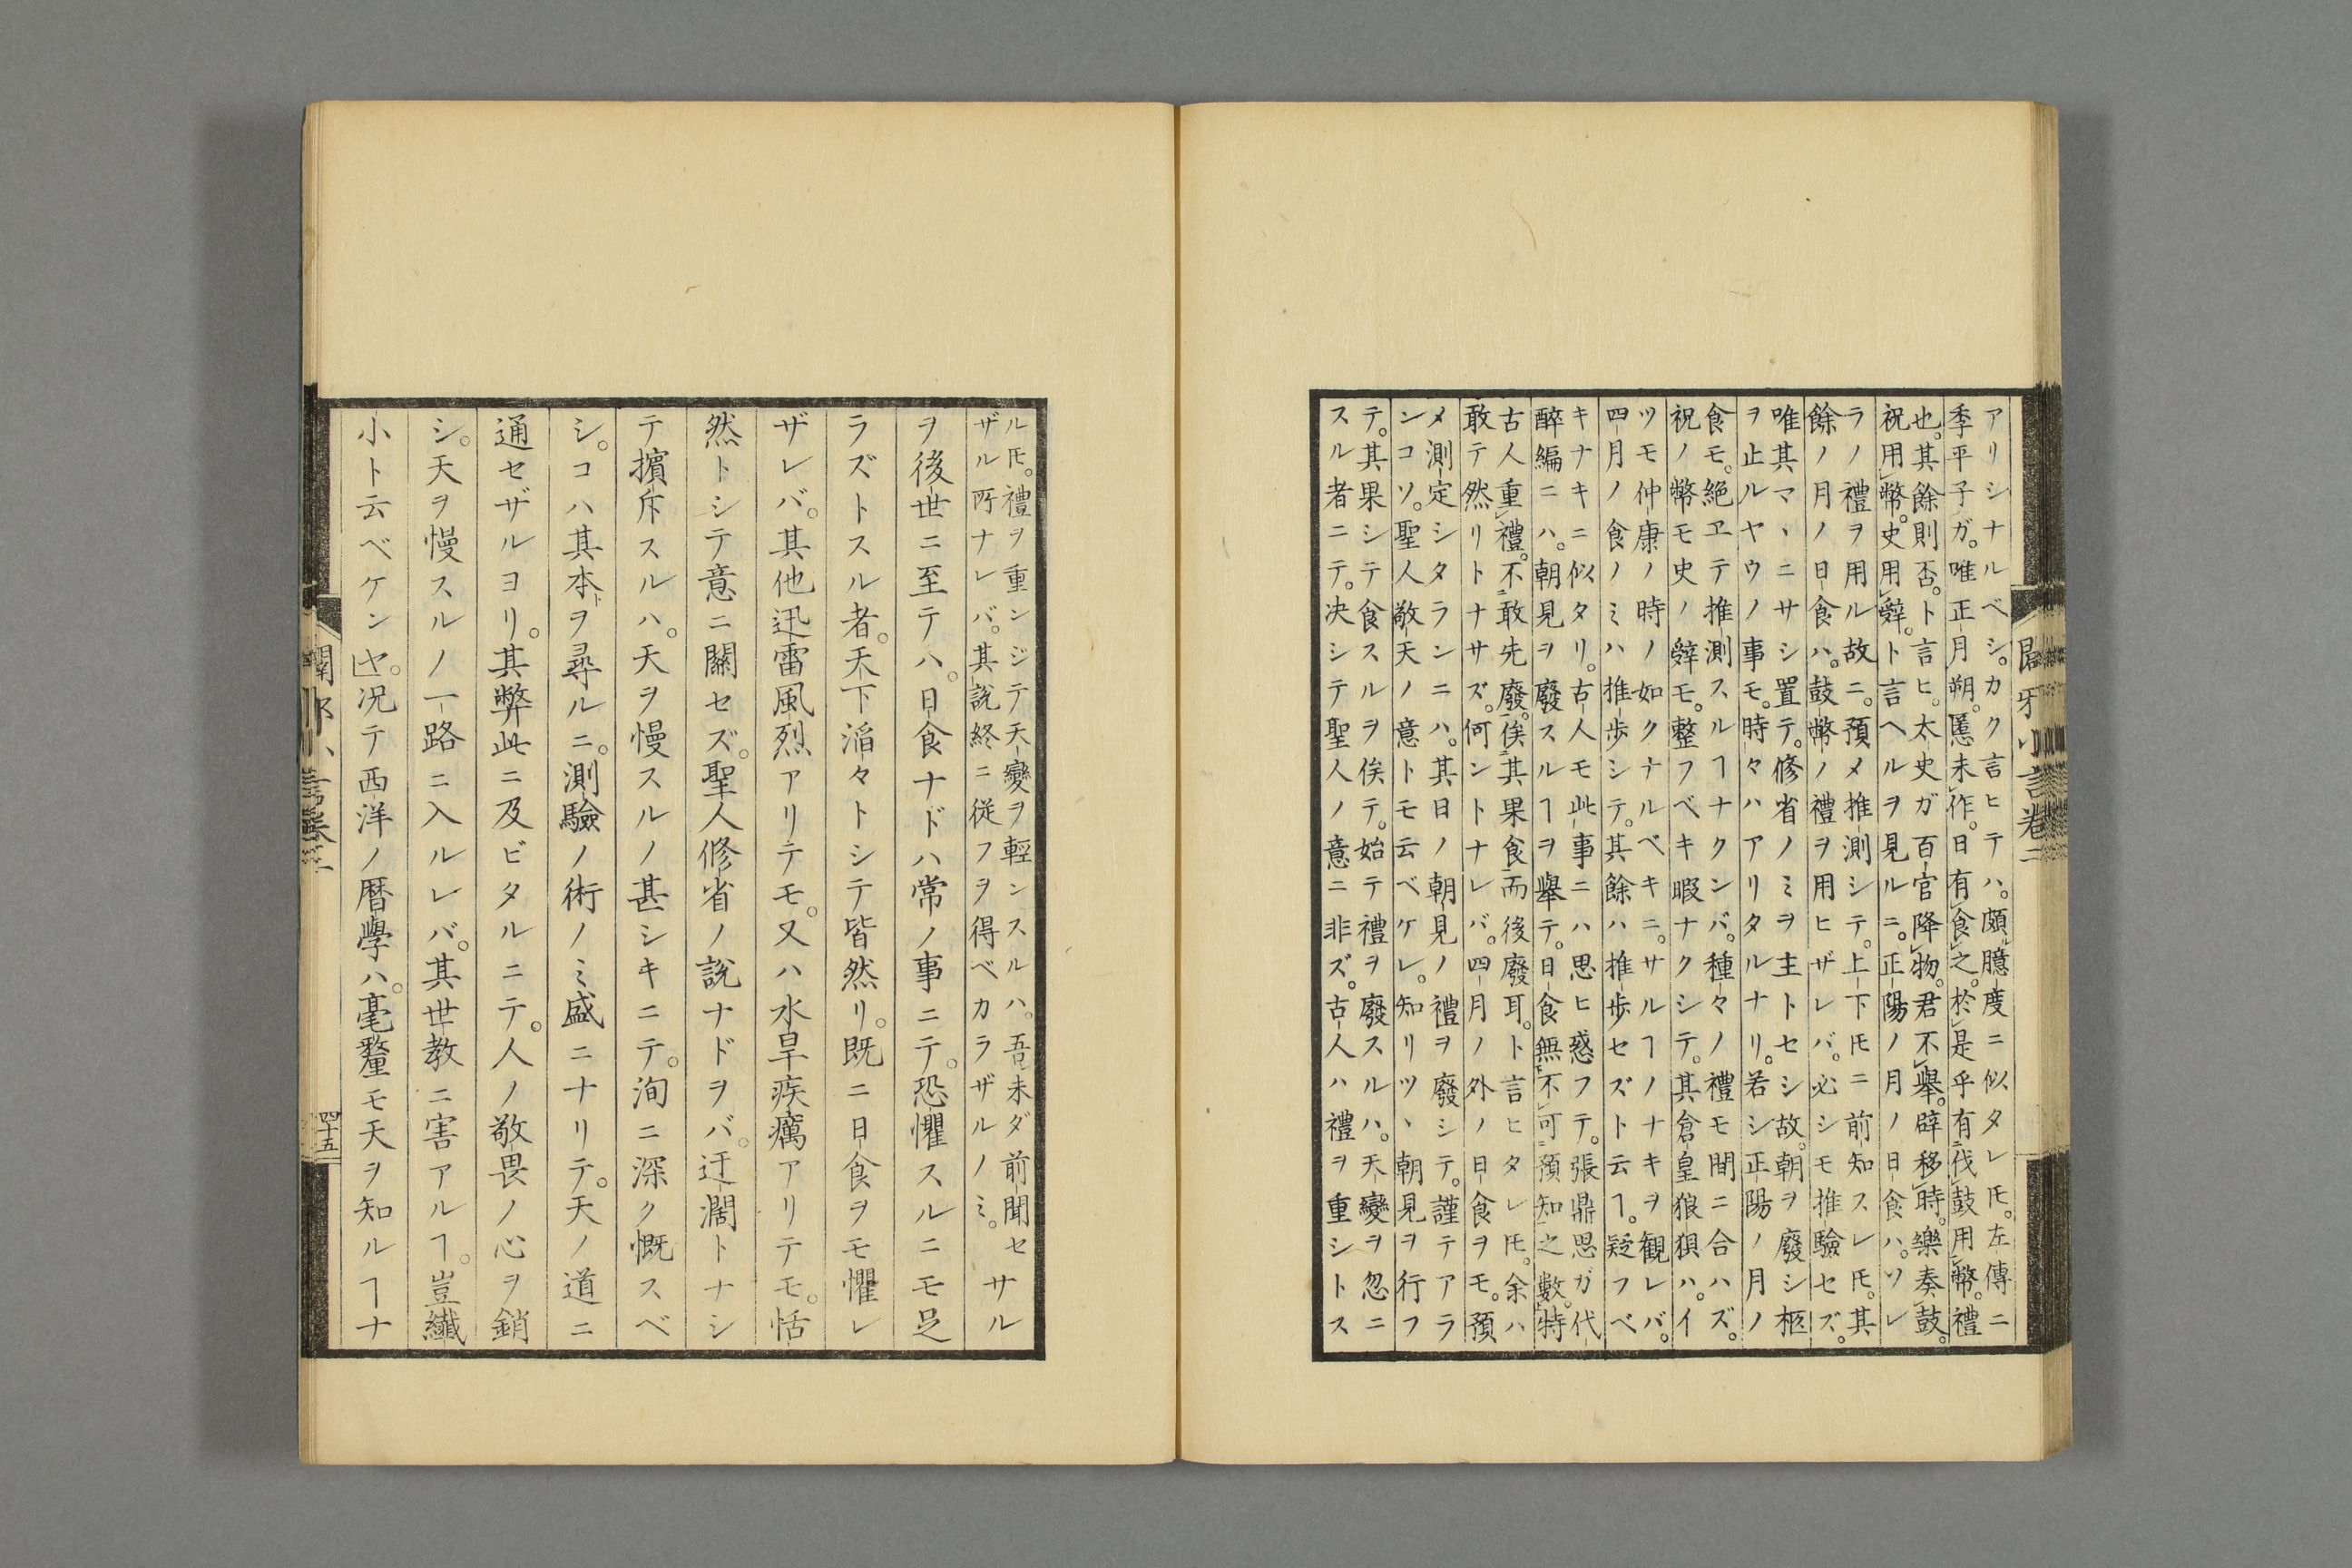 アリシナルベシ。カク言ヒテハ。頗ル臆度ニ似タレ𪜈。左傳ニ
季平子ガ。唯正月朔。慝未レ作。日有レ食レ之。於レ是乎有二伐レ鼓用一レ幣。禮
也。其餘則否。ト言ヒ。太史ガ百官降レ物。君不レ擧。辟移レ時。樂奏レ鼓。
祝用レ幣。史用レ辭。ト言ヘルヲ見ルニ。正陽ノ月ノ日食ハ。ソレ
ラノ禮ヲ用ル故ニ。預メ推測シテ。上下𪜈ニ前知スレ𪜈。其
餘ノ月ノ日食ハ。鼓幣ノ禮ヲ用ヒザレバ。必シモ推驗セズ。
唯其マヽニサシ置テ。修省ノミヲ主トセシ故。朝ヲ廢シ柩
ヲ止ルヤウノ事モ。時々ハアリタルナリ。若シ正陽ノ月ノ
食モ。絶ヱテ推測スルヿナクンバ。種々ノ禮モ間ニ合ハズ。
祝ノ幣モ史ノ辭モ。整フベキ暇ナクシテ。其倉皇狼狽ハ。イ
ツモ仲康ノ時ノ如クナルベキニ。サルヿノナキヲ観レバ。
四月ノ食ノミハ推歩シテ。其餘ハ推歩セズト云ヿ。疑フベ
キナキニ似タリ。古人モ此事ニハ思ヒ惑フテ。張鼎思ガ代
醉編ニハ。朝見ヲ廢スルヿヲ擧テ。日食無レ不レ可二預知一之數。特
古人重レ禮。不二敢先廢一。俟二其果食一而後廢耳。ト言ヒタレ𪜈。余ハ
敢テ然リトナサズ。何ントナレバ。四月ノ外ノ日食ヲモ。預
メ測定シタランニハ。其日ノ朝見ノ禮ヲ廢シテ。謹テアラ
ンコソ。聖人敬天ノ意トモ云ベケレ。知リツヽ朝見ヲ行フ
テ。其果シテ食スルヲ俟テ。始テ禮ヲ廢スルハ。天變ヲ忽ニ
スル者ニテ。决シテ聖人ノ意ニ非ズ。古人ハ禮ヲ重シトス
闢邪小言卷二
ル𪜈。禮ヲ重ンジテ天變ヲ輕ンスルハ。吾未ダ前聞セサル
ザル所ナレバ。其説終ニ従フヲ得ベカラザルノミ。
ヲ後世ニ至テハ。日食ナドハ常ノ事ニテ。恐懼スルニモ足
ラズトスル者。天下滔々トシテ皆然リ。既ニ日食ヲモ懼レ
ザレバ。其他迅雷風烈アリテモ。又ハ水旱疾癘アリテモ。恬
然トシテ意ニ關セズ。聖人修省ノ説ナドヲバ。迂濶トナシ
テ擯斥スルハ。天ヲ慢スルノ甚シキニテ。洵ニ深ク慨スベ
シ。コハ其本トヲ尋ルニ。測驗ノ術ノミ盛ニナリテ。天ノ道ニ
通セザルヨリ。其弊此ニ及ビタルニテ。人ノ敬畏ノ心ヲ銷
シ。天ヲ慢スルノ一路ニ入ルレバ。其世教ニ害アルヿ。豈纖
小ト云ベケン㢤。况テ西洋ノ曆學ハ。毫釐モ天ヲ知ルヿナ
闢邪小言卷二
四十五